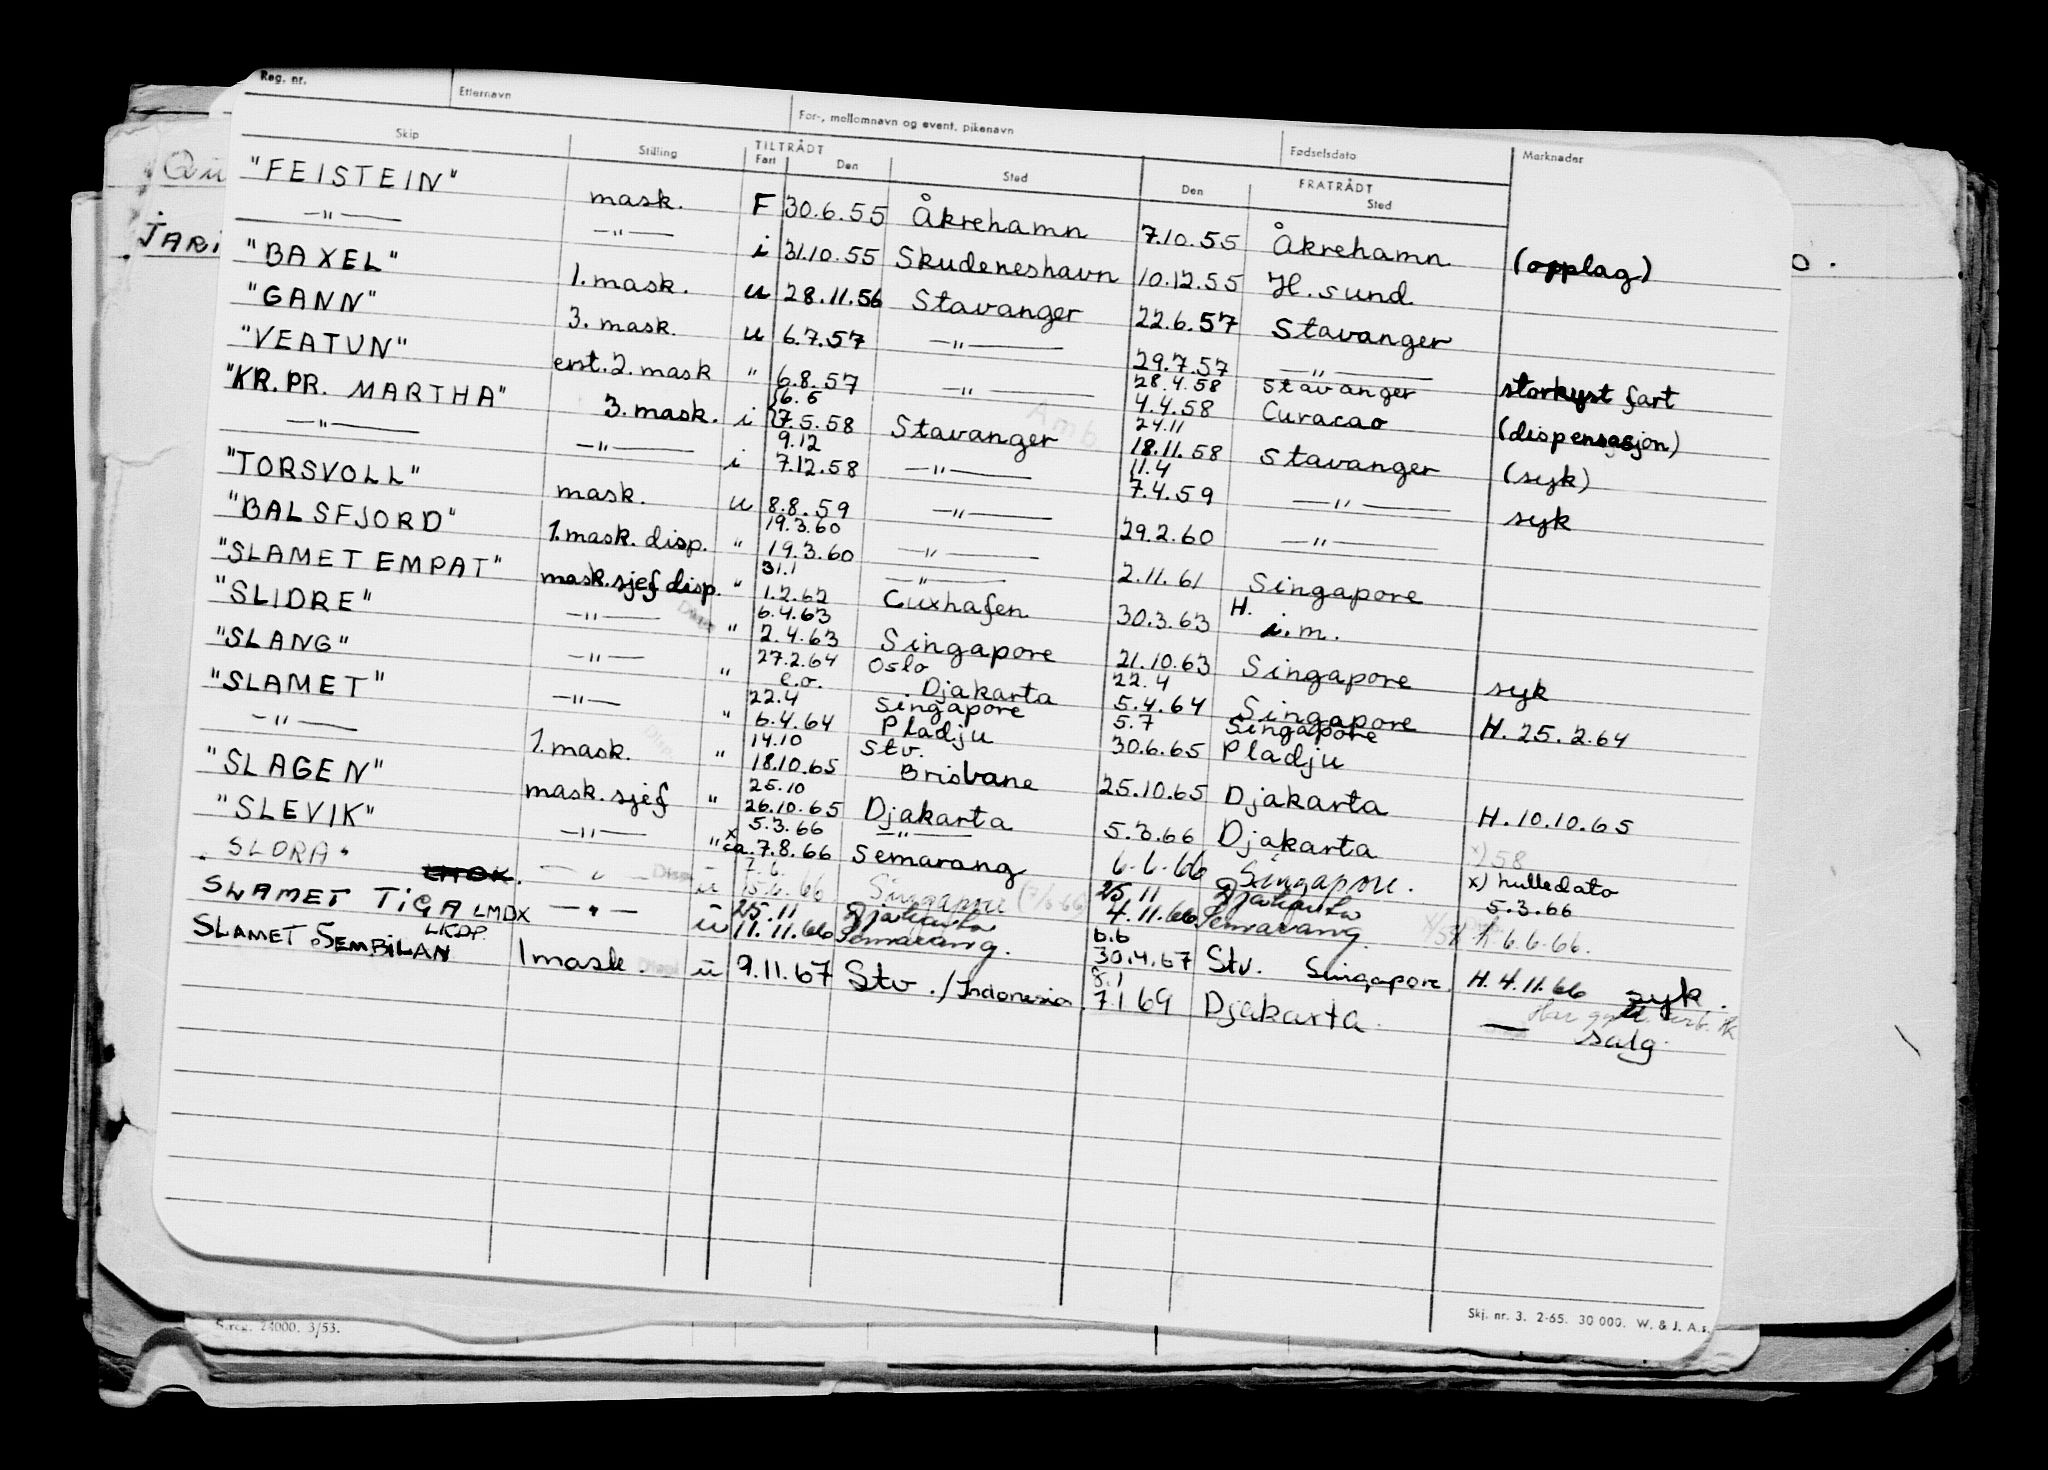 Reg. nr. Etternavn For-, mellomnavn og event. pikenavn Fødselsdato Merknader
Skip Stilling TILTRÅDT FRATRÅDT
Fart Den Sted Den Sted
"FEISTEIN" mask. F 30.6.55 Åkrehamn 7.10.55 Åkrehamn (opplag)
—"— —"— i 31.10.55 Skudeneshavn 10.12.55 H.sund
"BAXEL" 1. mask. u 28.11.56 Stavanger 22.6.57 Stavanger
"GANN" 3. mask. u 6.7.57 —"— 29.7.57 —"— storkyst fart
"VEATUN" erst. 2. mask " 6.8.57 —"— 28.4.58 Stavanger
4.4.58 Curacao (dispensasjon)
"KR. PR. MARTHA" 3. mask. i 16.5
7.5.58 Stavanger 24.11
18.11.58 Stavanger (syk)
—"— —"— i 9.12
7.12.58 —"— 11.4
7.4.59 —"— syk
"TORSVOLL" mask. u 8.8.59 —"— 29.2.60 —"—
"BALSFJORD" 1. mask. disp. " 19.3.60
19.3.60 —"— 2.11.61 Singapore
"SLAMET EMPAT" mask.sjef disp. " 31.1
1.2.62 —"—
Cuxhafen 30.3.63 H. i.m.
"SLIDRE" —"— " 6.4.63
2.4.63 Singapore 21.10.63 Singapore syk
"SLANG" —"— " 27.2.64
e.o. Oslo
Djakarta 22.4
5.4.64 Singapore H. 25.2.64
"SLAMET" —"— " 22.4
6.4.64 Singapore
Pladju 5.7
30.6.65 Singapore
Pladju
—"— 1. mask. " 14.10
18.10.65 Stv.
Brisbane 25.10.65 Djakarta H. 10.10.65
"SLAGEN" mask. sjef " 25.10
26.10.65 Djakarta 5.3.66 Djakarta x) 58
"SLEVIK" —"— " 5.3.66
x ca. 7.8.66 —"—
Semarang 6.6.66 Singapore. x) hulledato
5.3.66
"SLORA" —"— u 7.6.
15.6.66 Singapore (7/6-66) 25.11
4.11.66 Djakarta
Semarang. 6.6.66.
SLAMET TIGA LMDX —"— u 25.11
11.11.66 Djakarta
Semarang. 6.6
30.4.67 Stv. Singapore. H. 4.11.66 syk.
SLAMET SEMBILAN LKDP. 1 mask. u 9.11.67 Stv./Indonesia 8.1
7.1 69 Djakarta. — salg.
Skj. nr. 3. 2-65. 30 000. W. & J. A.s.
S.reg. 24000. 3/53.